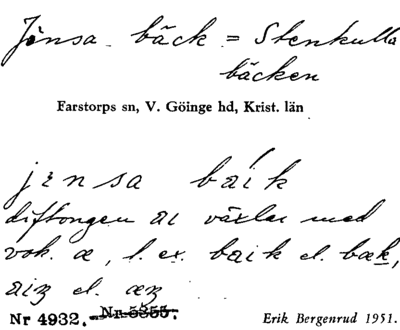 Jönsa bäck = Stenkulla
bäcken
Farstorps sn, V. Göinge hd, Krist. län
jensa baik
diftongen ai växlar med
vok. æ, t. ex. baik el. bæk,
aiʒ el. æʒ
Nr 4932. Nr 5355.
Erik Bergenrud 1951.